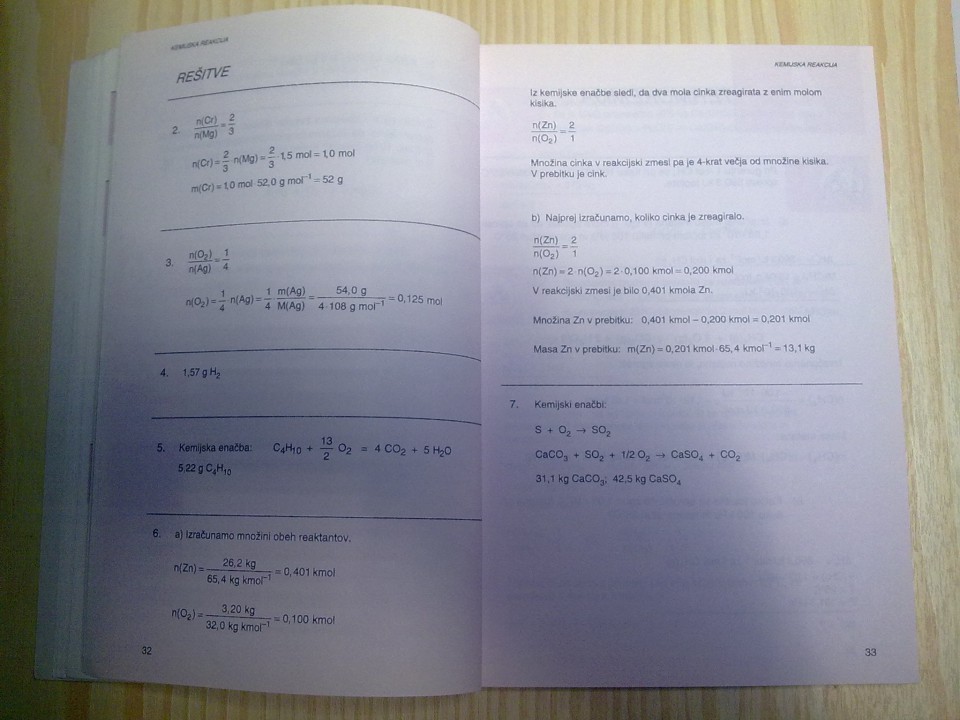 KEMIJSKA REAKCIJA
REŠITVE
2. n(Cr)/n(Mg) = 2/3
n(Cr) = 2/3 · n(Mg) = 2/3 · 1,5 mol = 1,0 mol
m(Cr) = 1,0 mol · 52,0 g mol⁻¹ = 52 g
3. n(O₂)/n(Ag) = 1/4
n(O₂) = 1/4 · n(Ag) = 1/4 m(Ag)/M(Ag) = 54,0 g / 4 · 108 g mol⁻¹ = 0,125 mol
4. 1,57 g H₂
5. Kemijska enačba: C₄H₁₀ + 13/2 O₂ = 4 CO₂ + 5 H₂O
5,22 g C₄H₁₀
6. a) Izračunamo množini obeh reaktantov.
n(Zn) = 26,2 kg / 65,4 kg kmol⁻¹ = 0,401 kmol
n(O₂) = 3,20 kg / 32,0 kg kmol⁻¹ = 0,100 kmol
32
KEMIJSKA REAKCIJA
Iz kemijske enačbe sledi, da dva mola cinka zreagirata z enim molom
kisika.
n(Zn)/n(O₂) = 2/1
Množina cinka v reakcijski zmesi pa je 4-krat večja od množine kisika.
V prebitku je cink.
b) Najprej izračunamo, koliko cinka je zreagiralo.
n(Zn)/n(O₂) = 2/1
n(Zn) = 2 · n(O₂) = 2 · 0,100 kmol = 0,200 kmol
V reakcijski zmesi je bilo 0,401 kmola Zn.
Množina Zn v prebitku: 0,401 kmol – 0,200 kmol = 0,201 kmol
Masa Zn v prebitku: m(Zn) = 0,201 kmol · 65,4 kmol⁻¹ = 13,1 kg
7. Kemijski enačbi:
S + O₂ → SO₂
CaCO₃ + SO₂ + 1/2 O₂ → CaSO₄ + CO₂
31,1 kg CaCO₃; 42,5 kg CaSO₄
33